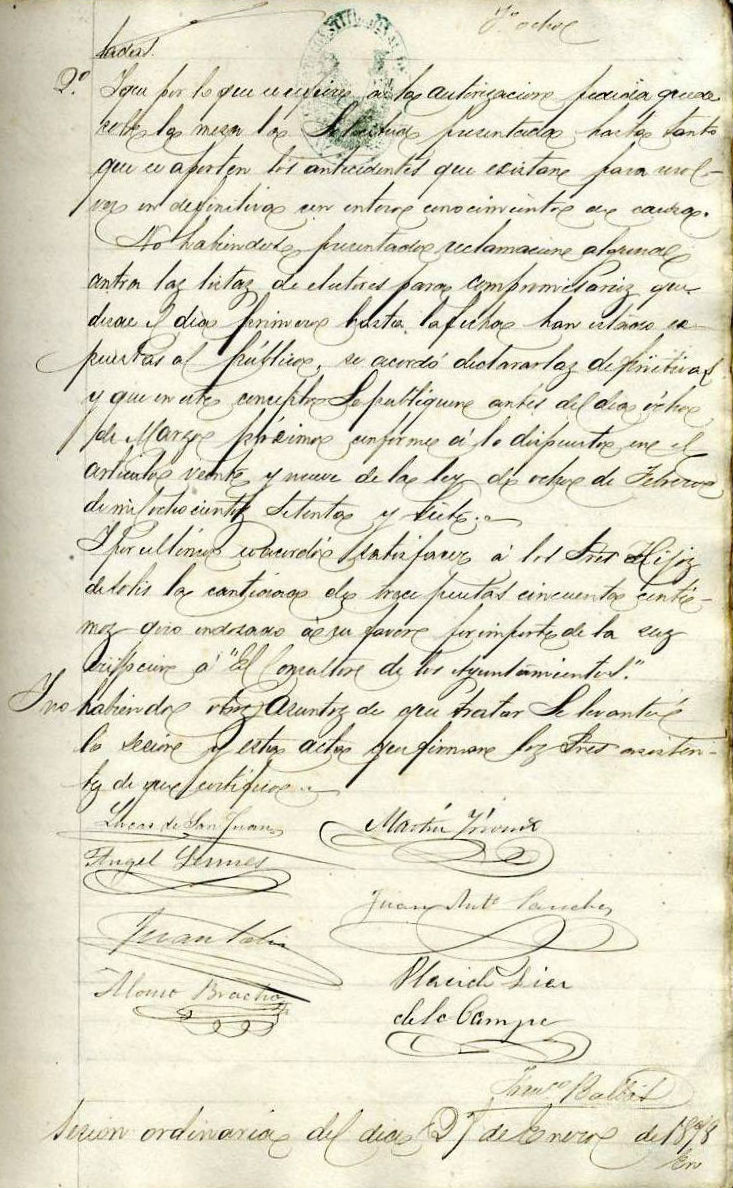 Fº ocho
tados.
2.º Y que por lo que se refiere a la autorizacion pedida quede
sobre la mesa la Solicitud presentada hasta tanto
que se aporten los antecedentes que existan para resol-
ver en definitiva con entero conocimiento de causa.
No habiendose presentado reclamacion alguna
contra las listas de electores para compromisarios que
desde el dia primero hasta la fecha han estado ex-
puestas al público, se acordó declararlas definitivas
y que en este concepto se publiquen antes del dia ocho
de Marzo próximo conforme á lo dispuesto en el
articulo veinte y nueve de la ley de ocho de Febrero
de mil ochocientos setenta y siete.
Y por ultimo se acordó satisfacer á los Sres Hijos
de Solis la cantidad de trece pesetas cincuenta centi-
mos giro endosado á su favor por importe de la sus
cripcion á "El Consultor de los Ayuntamientos."
Y no habiendo otros asuntos de que tratar se levantó
la sesion y esta acta que firman los Sres asisten-
tes de que certifico.
Lucas de San Juan
Martin
Angel
Juan Antº Sanchez
Juan
Alonso Bracho
Placido
de la Campa
Franco Balbis
Sesion ordinaria del dia 27 de Enero de 1878
En